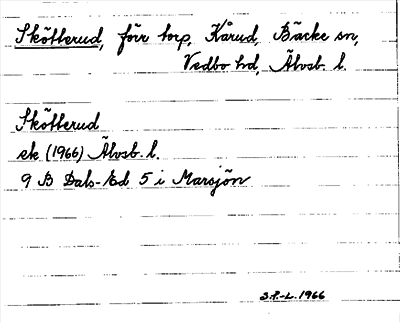 Skötterud, förr torp, Kårud, Bäcke sn,
Vedbo hd, Älvsb. l.
Skötterud
ek. (1966) Älvsb. l.
9 B Dals-Ed 5 i Marsjön
S.P.-L. 1966